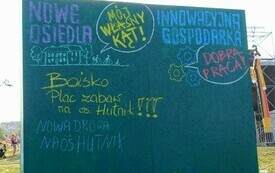 NOWE
OSIEDLA
MÓJ
WŁASNY
KĄT!
INNOWACYJNA
GOSPODARKA
DOBRA
PRACA!
Boisko
Plac zabaw
na os. Hutnik!!!
NOWA DROGA
NA OŚ HUTNIK